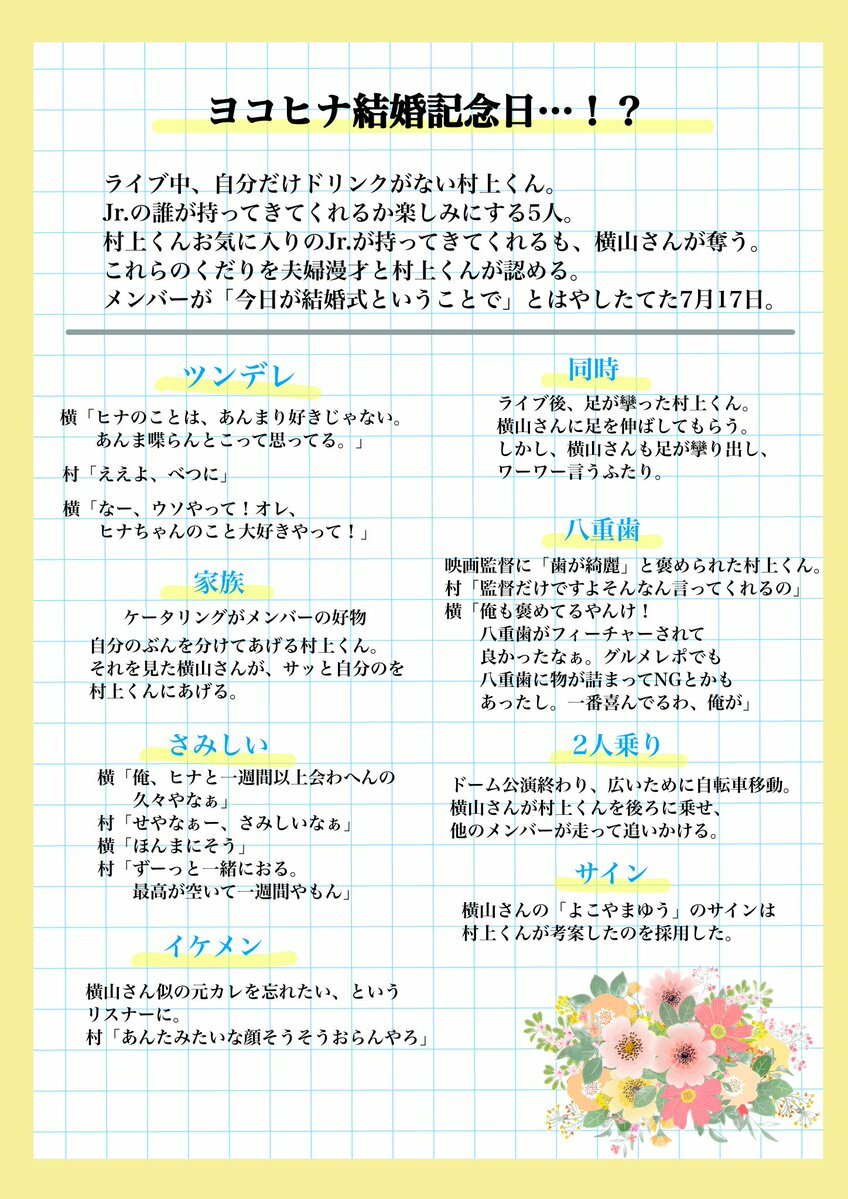 ヨコヒナ結婚記念日…！？
ライブ中、自分だけドリンクがない村上くん。
Jr.の誰が持ってきてくれるか楽しみにする5人。
村上くんお気に入りのJr.が持ってきてくれるも、横山さんが奪う。
これらのくだりを夫婦漫才と村上くんが認める。
メンバーが「今日が結婚式ということで」とはやしたてた7月17日。
ツンデレ
横「ヒナのことは、あんまり好きじゃない。
あんま喋らんとこって思ってる。」
村「ええよ、べつに」
横「なー、ウソやって！オレ、
ヒナちゃんのこと大好きやって！」
家族
ケータリングがメンバーの好物
自分のぶんを分けてあげる村上くん。
それを見た横山さんが、サッと自分のを
村上くんにあげる。
さみしい
横「俺、ヒナと一週間以上会わへんの
久々やなぁ」
村「せやなぁー、さみしいなぁ」
横「ほんまにそう」
村「ずーっと一緒におる。
最高が空いて一週間やもん」
イケメン
横山さん似の元カレを忘れたい、という
リスナーに。
村「あんたみたいな顔そうそうおらんやろ」
同時
ライブ後、足が攣った村上くん。
横山さんに足を伸ばしてもらう。
しかし、横山さんも足が攣り出し、
ワーワー言うふたり。
八重歯
映画監督に「歯が綺麗」と褒められた村上くん。
村「監督だけですよそんなん言ってくれるの」
横「俺も褒めてるやんけ！
八重歯がフィーチャーされて
良かったなぁ。グルメレポでも
八重歯に物が詰まってNGとかも
あったし。一番喜んでるわ、俺が」
2人乗り
ドーム公演終わり、広いために自転車移動。
横山さんが村上くんを後ろに乗せ、
他のメンバーが走って追いかける。
サイン
横山さんの「よこやまゆう」のサインは
村上くんが考案したのを採用した。